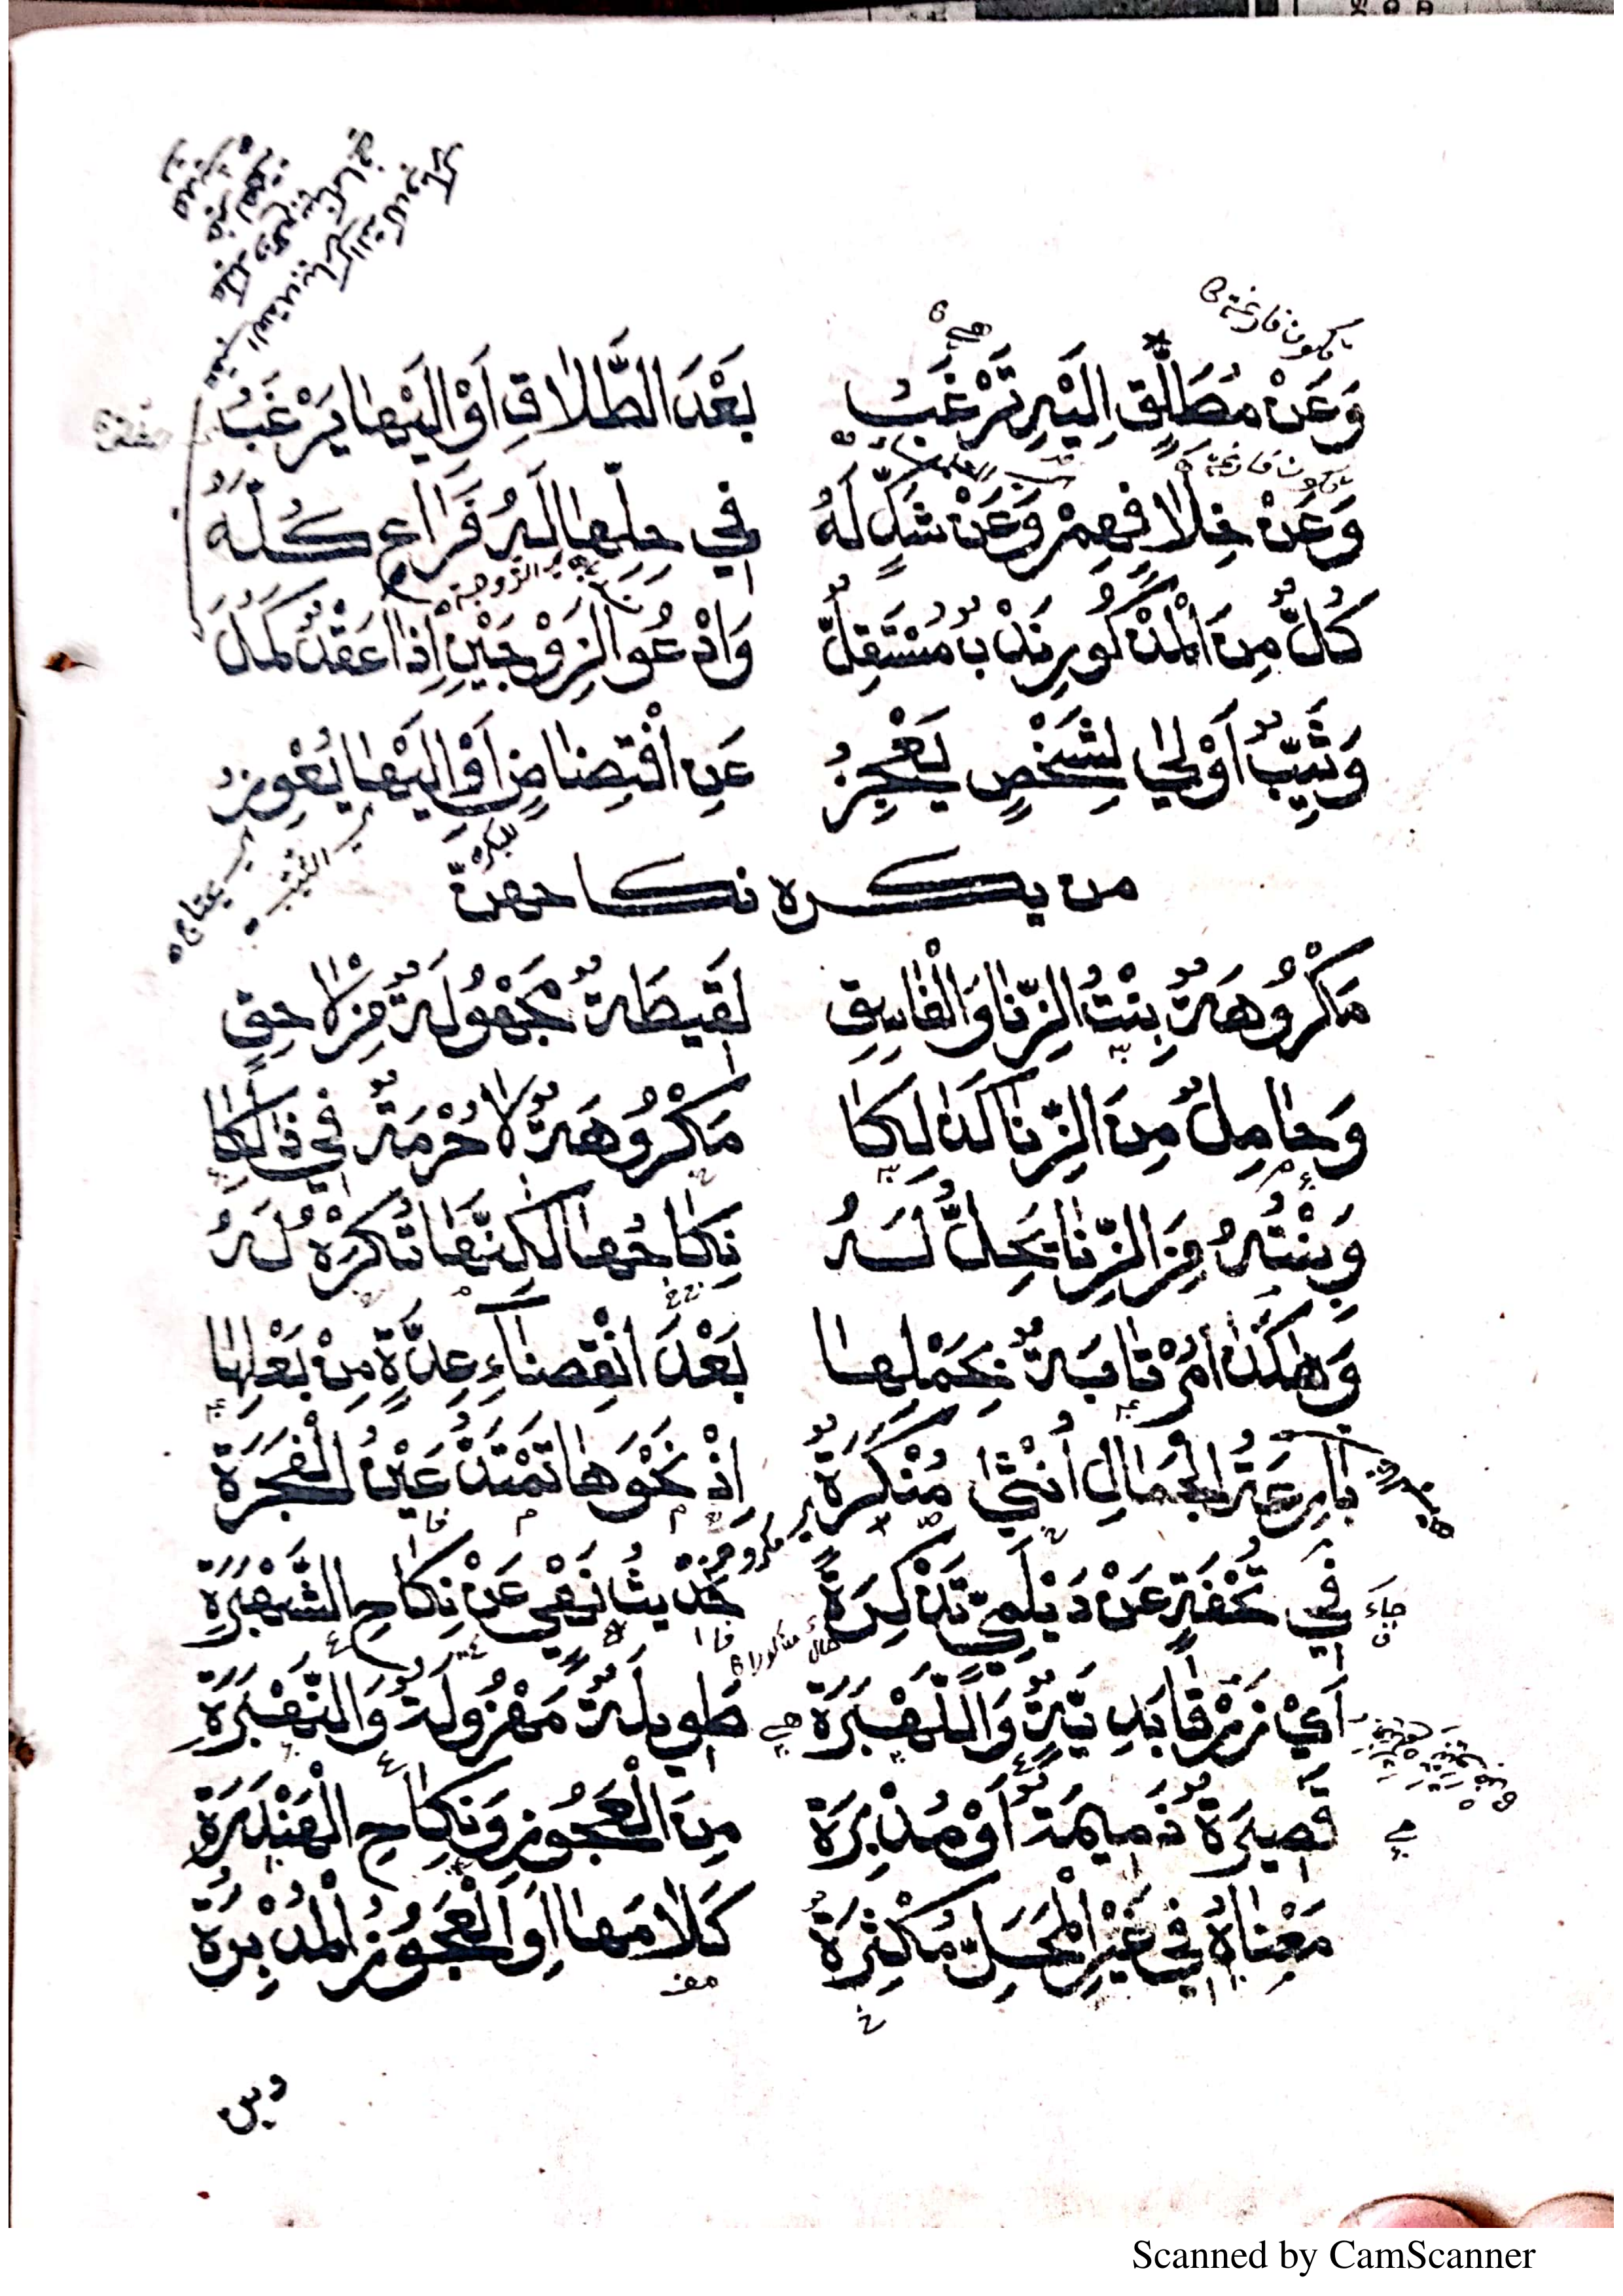 يكون فارغة
هي
وَعَنْ مُطَلِّقٍ اِلَيْهِ تَرْغَبُ بَعْدَ الطَّلَاقِ اَوْ اِلَيْهَا يَرْغَبُ
يكون فارغة
وَعَنْ خِلَافِهِمْ وَعَنْ شَكٍّ لَهُ فِي حِلِّهَا لَهُ فَرَاعِ كُلَّهُ
الزوجة
كُلٌّ مِنَ الْمَذْكُورِ نَدْبٌ مُسْتَقِلٌّ وَادْعُو الِزَوْجَيْنِ اِذَا عَقْدٌ كَمَلَ
وَثَيِّبٌ اَوْلٰى لِشَخْصٍ يَعْجِزُ عَنِ افْتِضَاضٍ اَوْ اِلَيْهَا يُعْوِزُ
للبكر
اي الثيب
اي يحتاج
من يكره نكاحهنّ
مَكْرُوهَةٌ بِنْتُ الزِّنَا وَالْفَاسِقِ لَقِيطَةٌ مَجْهُولَةٌ مِنْ لَاحِقٍ
وَحَامِلٌ مِنَ الزِّنَا كَذٰلِكَا مَكْرُوهَةٌ لَا حُرْمَةٌ فِي ذٰلِكَا
وَبِنْتُهُ مِنَ الزِّنَا يَحِلُّ لَهُ نِكَاحُهَا لٰكِنَّهَا تُكْرَهُ لَهُ
وَهٰكَذَا مُرْتَابَةٌ بِحَمْلِهَا بَعْدَ انْقِضَاءِ عِدَّةٍ مِنْ بَعْلِهَا
بَارِعَةُ الْجَمَالِ اُنْثٰى مُنْكَرَةٌ اِذْ نَحْوَهَا تَمْتَدُّ عَيْنُ الْفَجَرَةِ
اي مكروهة
جَاءَ فِي تُحْفَةٍ عَنْ دَيْلَمِيٍّ تَذْكِرَةً حَدِيثًا نَهْيِ عَنْ نِكَاحِ الشَّهْبَرَةِ
حال مذكورا
اَيْ زَرْقَا بَدِيَّةٌ وَاللَّهْبَرَةِ هي طَوِيلَةٌ مَهْزُولَةٌ وَالنَّهْبَرَةِ
هي قَصِيرَةٌ ذَمِيمَةٌ اَوْ مُدْبِرَةْ مِنَ الْعَجُوزِ وَنِكَاحِ الْهَنْدَرَةِ
مَعْنَاهُ فِي غَيْرِ الْمَحَلِّ مُكْثِرَةٌ كَلَامَهَا اَوِ الْعَجُوزُ الْمُدْبِرَةْ
مفـ
Scanned by CamScanner